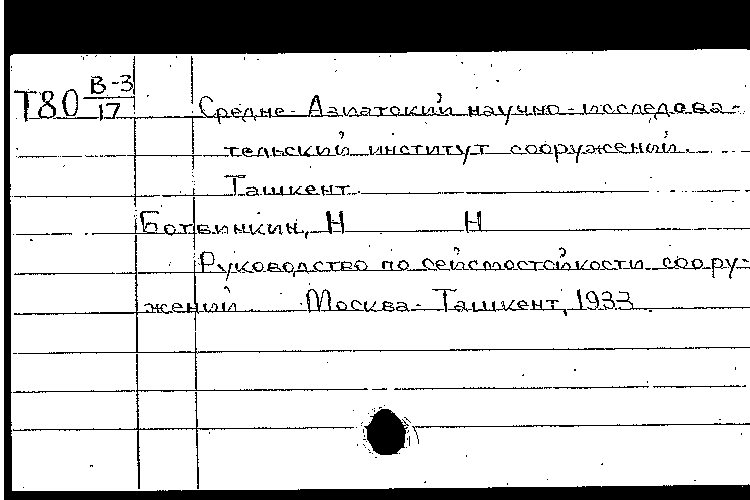 Т80 В-3
17
Средне-Азиатский научно-исследова-
тельский институт сооружений.
Ташкент.
Ботвинкин, Н Н
Руководство по сейсмостойкости соору-
жений Москва-Ташкент, 1933.